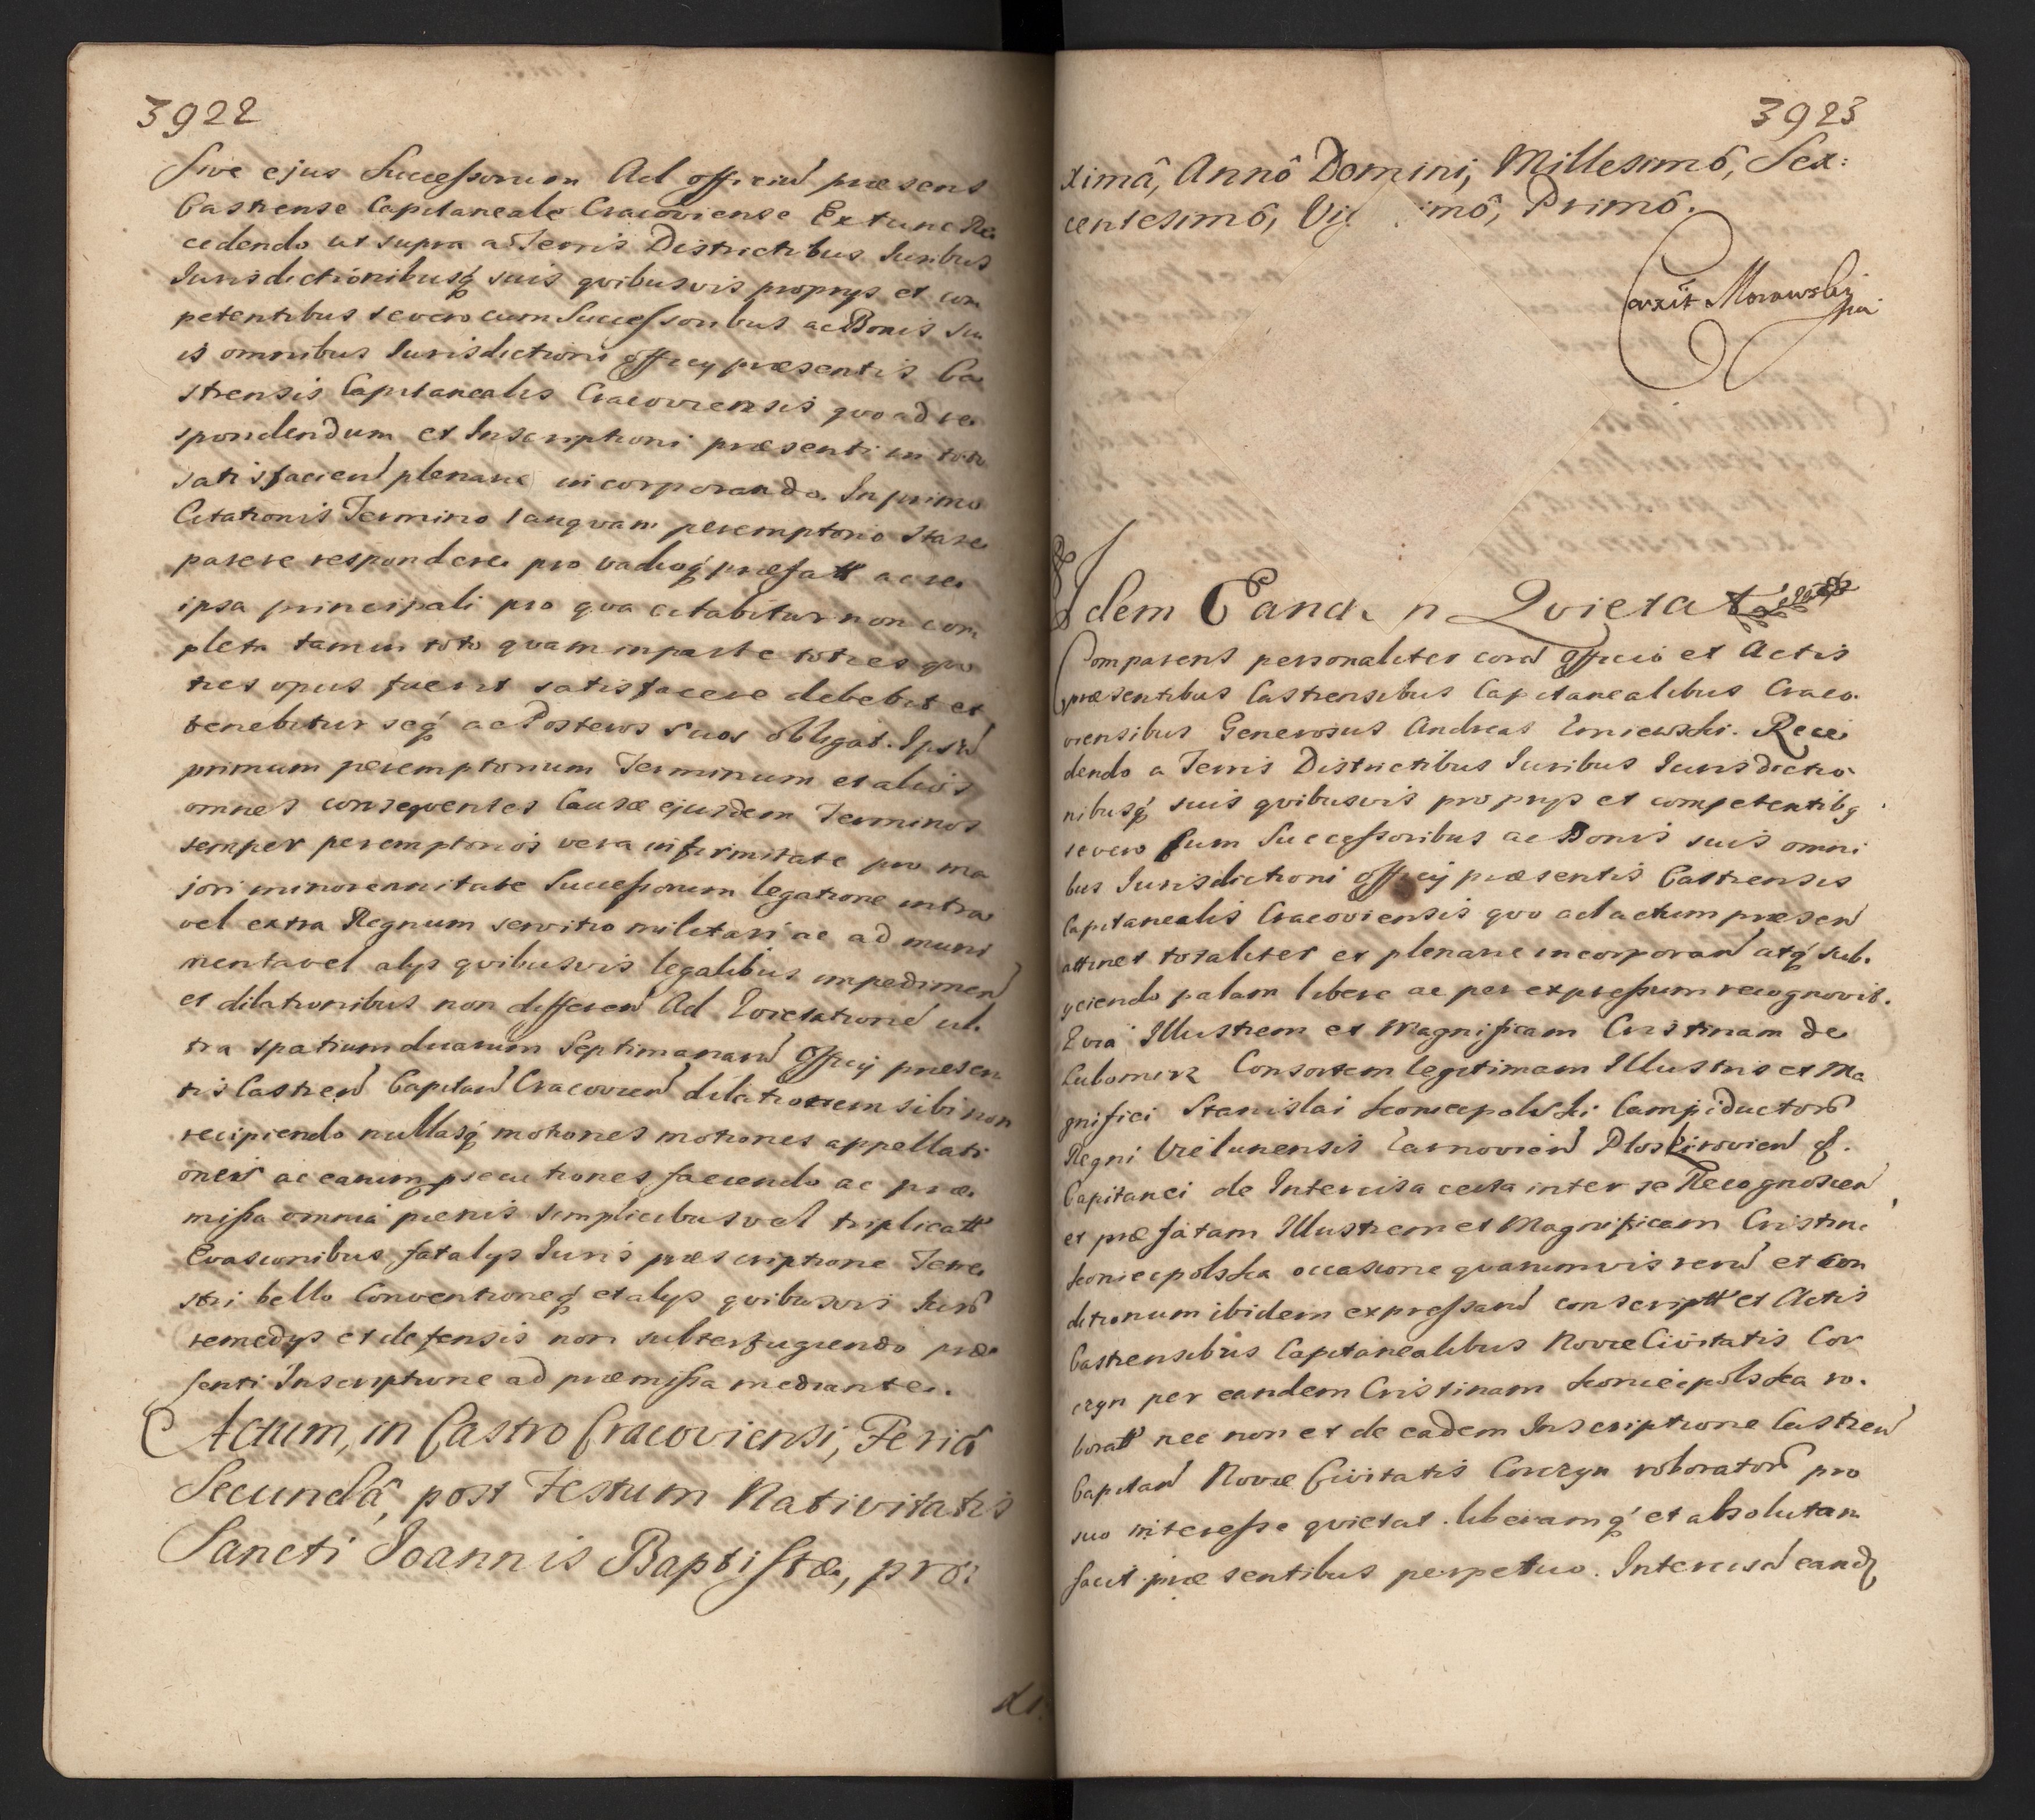 3922
Sive ejus Successorum Ad officiū præsens
Castrense Capitaneale Cracoviense Extunc Re
cedendo ut supra a Terris Districtibus Iuribus
Iurisdictionibusq́ suis qvibusvis proprys et com
petentibus se vero cum Successoribus ac Bonis su
is omnibus Iurisdictioni officy præsentis Ca
strensis Capitanealis Cracoviensis qvo ad re
spondendum et Inscriptioni præsenti in toto
satisfaciend plenarie incorporando. In primo
Citationis Termino tanqvam peremptorio Stare
parere respondere pro vadioq́ præfatt ac re
ipsa principali pro qva citabitur non com
pleta tam in toto qvam in parte toties qvo
ties opus fuerit satisfacere debebit et
tenebitur seq́ ac Posteros suos obligat. Ipsū
primum peremptorium Terminum et alios
omnes conseqventes Causæ ejusdem Terminos
semper peremptorios vera infirmitate pro ma
jori minorennitate Successorum legatione intra
vel extra Regnum servitio militari ac ad muni
menta vel alys qvibusvis legalibus impedimen
et dilationibus non differen Ad Qvietatione ul
tra spatium duarum Septimanarū Officy præsen
tis Castren Capitan Cracovien dilationem sibi non
recipiendo nullasq́ motiones motiones appellati
ones ac earum psecutiones faciendo ac præ
missa omnia pænis simplicibus vel triplicatt
Evasionibus fatalys Iuris præscriptione Terre
stri bello Conventioneq́ et alys qvibusvis Iurō
remedys et defensis non subterfugiendo præ
senti Inscriptione ad præmissa mediante.
Actum, in Castro Cracoviensi, Feriâ
Secundâ, post Festum Nativitatis
Sancti Joannis Baptistæ, pro:
3923
ximâ, Annô Domini, Millesimô, Sex:
centesimô, Vi imô, Primô.
Morawski
Idem Eand n Qvietat
Comparens personaliter corā Officiō et Actis
præsentibus Castrensibus Capitanealibus Craco
viensibus Generosus Andreas Rece
dendo a Terris Districtibus Iuribus Iurisdictio
nibusq́ suis qvibusvis proprys et competentibq
se vero cum Successoribus ac Bonis suis omni
bus Iurisdictioni officy præsentis Castrensis
Capitanealis Cracoviensis qvo ad actum præsen
attinet totaliter et plenarie incorporan atq́ sub
yciendo palam libere ac per expressum recognovit.
Qvia Illustrem et Magnificam Cristinam de
Lubomirz Consortem legitimam Illustris et Ma
gnifici Stanislai Koniecpolski Campiductorō
Regni Vielunensis Ploskirovien
Capitanei de Intercisa certa inter se Recognoscen
et præfatam Illustrem et Magnificam Cristin
Koniecpolska occasione qvarumvis rerū et con
ditionum ibidem expressarū conscriptt et Actis
Castrensibus Capitanealibus Novæ Civitatis Cor
czyn per eandem Cristinam Koniecpolska ro
boratt nec non et de eadem Inscriptione Castren
Capitan Novæ Civitatis Corczyn roboratorō pro
suo interesse qvietat. liberamq́ et absolutam
facit præsentibus perpetuo. Intercisā eand